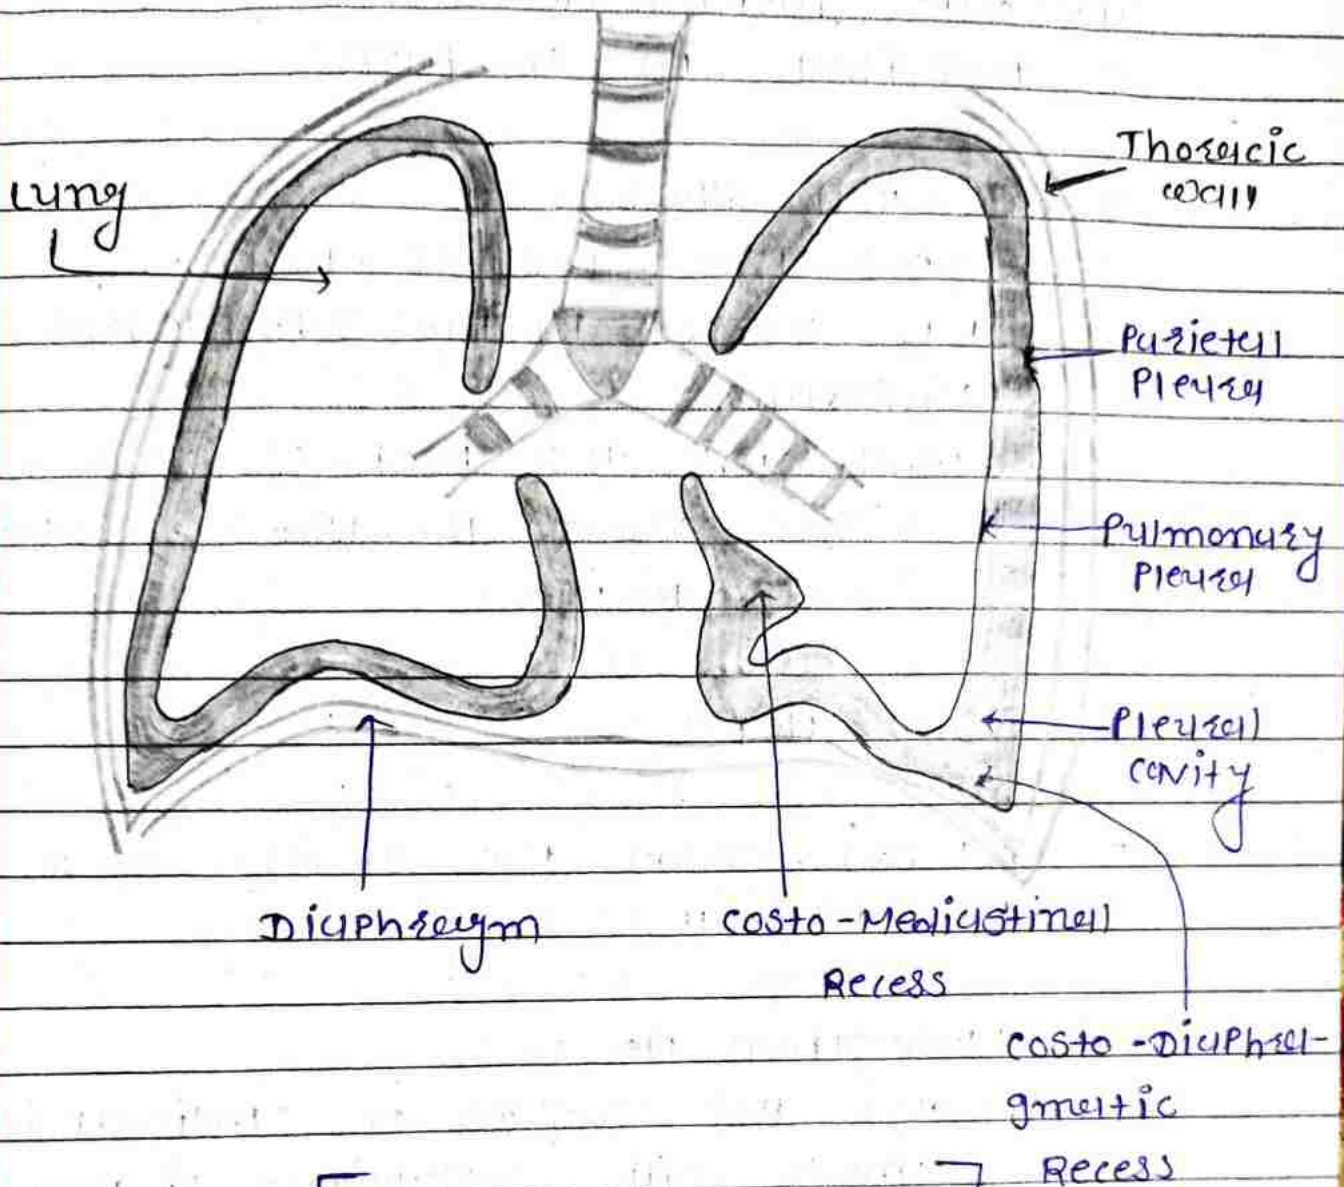 Lung
Thoracic
wall
Parietal
Pleura
Pulmonary
Pleura
Pleural
cavity
Diaphragm
Costo-Mediastinal
Recess
Costo-Diaphra-
gmatic
Recess